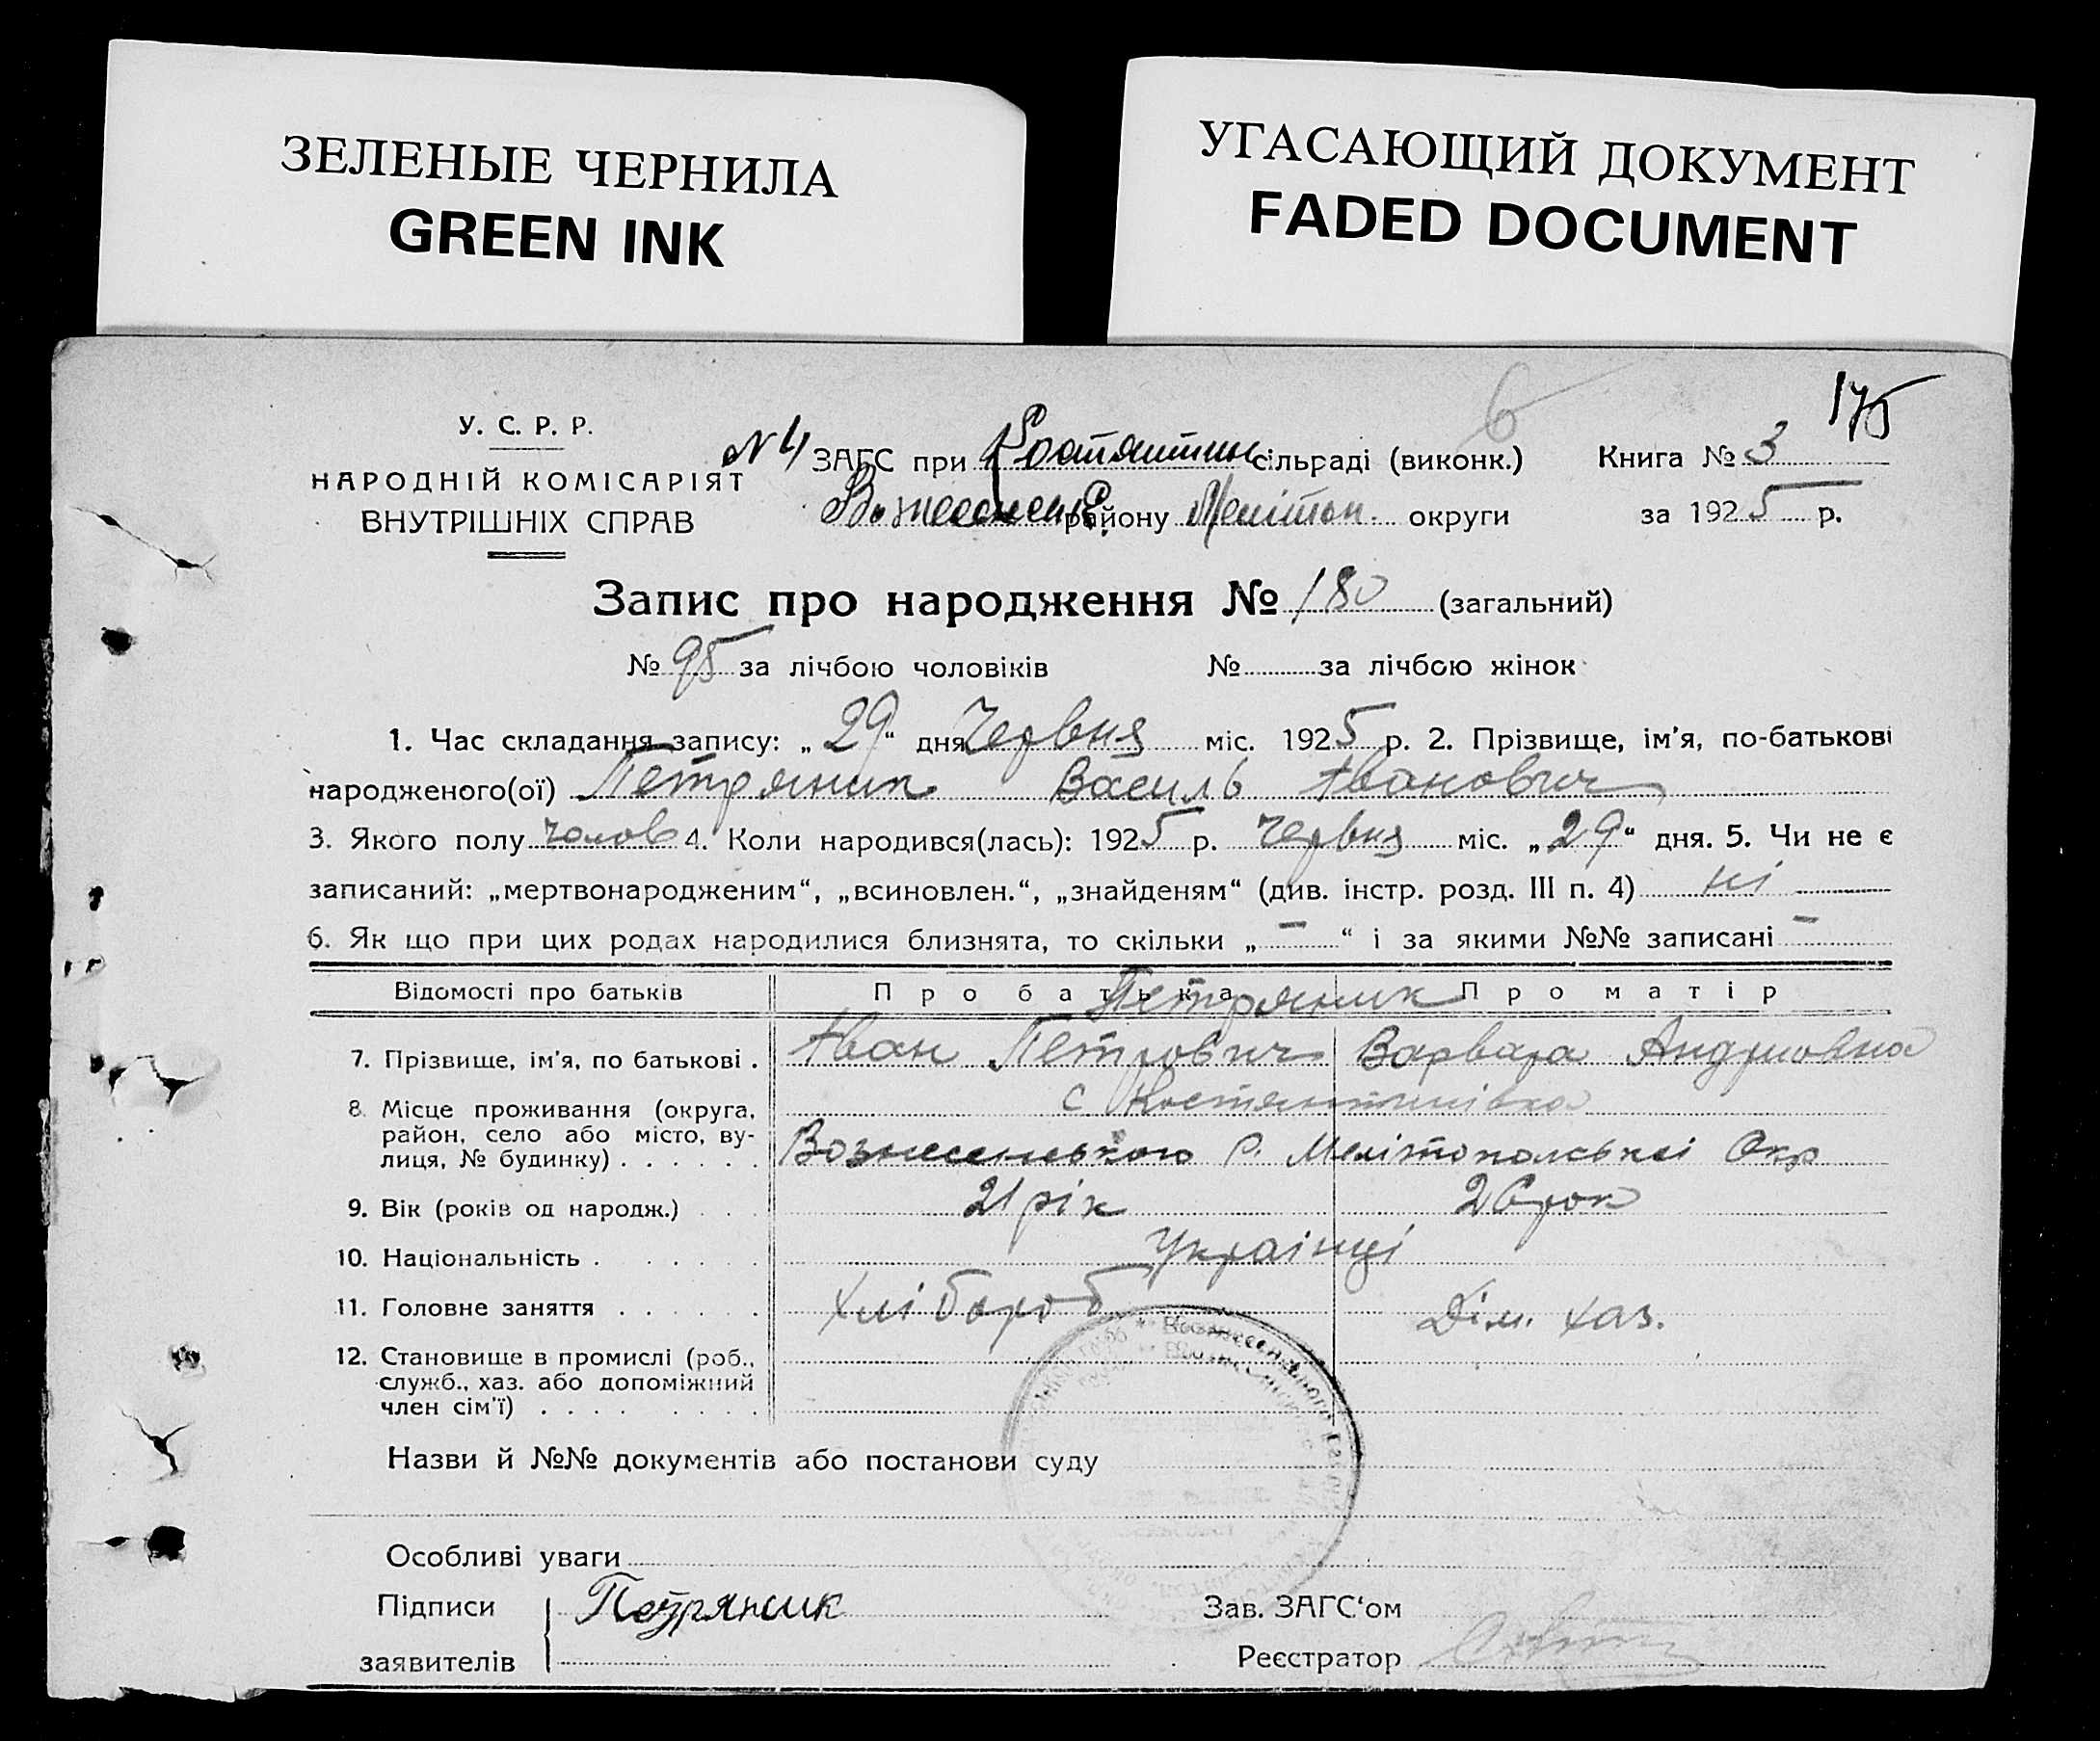 ЗЕЛЕНЫЕ ЧЕРНИЛА
GREEN INK
УГАСАЮЩИЙ ДОКУМЕНТ
FADED DOCUMENT
6
175
У. С. Р. Р.
НАРОДНІЙ КОМІСАРІЯТ
ВНУТРІШНІХ СПРАВ
№ 4 ЗАГС при Костянтин сільраді (виконк.)
Вознесенськ району Мелітоп. округи
Книга № 3
за 1925 р.
Запис про народження № 180 (загальний)
№ 95 за лічбою чоловіків № за лічбою жінок
1. Час складання запису: „29“ дня Червня міс. 1925 р. 2. Прізвище, ім'я, по-батькові
народженого(ої) Петряник Василь Іванович
3. Якого полу чолов 4. Коли народився(лась): 1925 р. Червня міс. „29“ дня. 5. Чи не є
записаний: „мертвонародженим“, „всиновлен.“, „знайденям“ (див. інстр. розд. III п. 4) ні
6. Як що при цих родах народилися близнята, то скільки „ — “ і за якими №№ записані —
Відомості про батьків Про батька Про матір
Петряник
7. Прізвище, ім'я, по батькові . Іван Петрович Варвара Андриовна
с Костянтинівка
8. Місце проживання (округа,
район, село або місто, ву-
лиця, № будинку) . . . . . . Вознесенського Р. Мелітопольскої Окр
9. Вік (років од народж.) . . . 21 рік 26 рок
10. Національність . . . . . . Українці
11. Головне заняття . . . . . . Хлібороб Дім. хаз.
12. Становище в промислі (роб.,
служб., хаз. або допоміжний
член сім'ї) . . . . . . . . .
Назви й №№ документів або постанови суду
Особливі уваги
Підписи
заявителів
Петряник
Зав. ЗАГС‘ом
Реєстратор